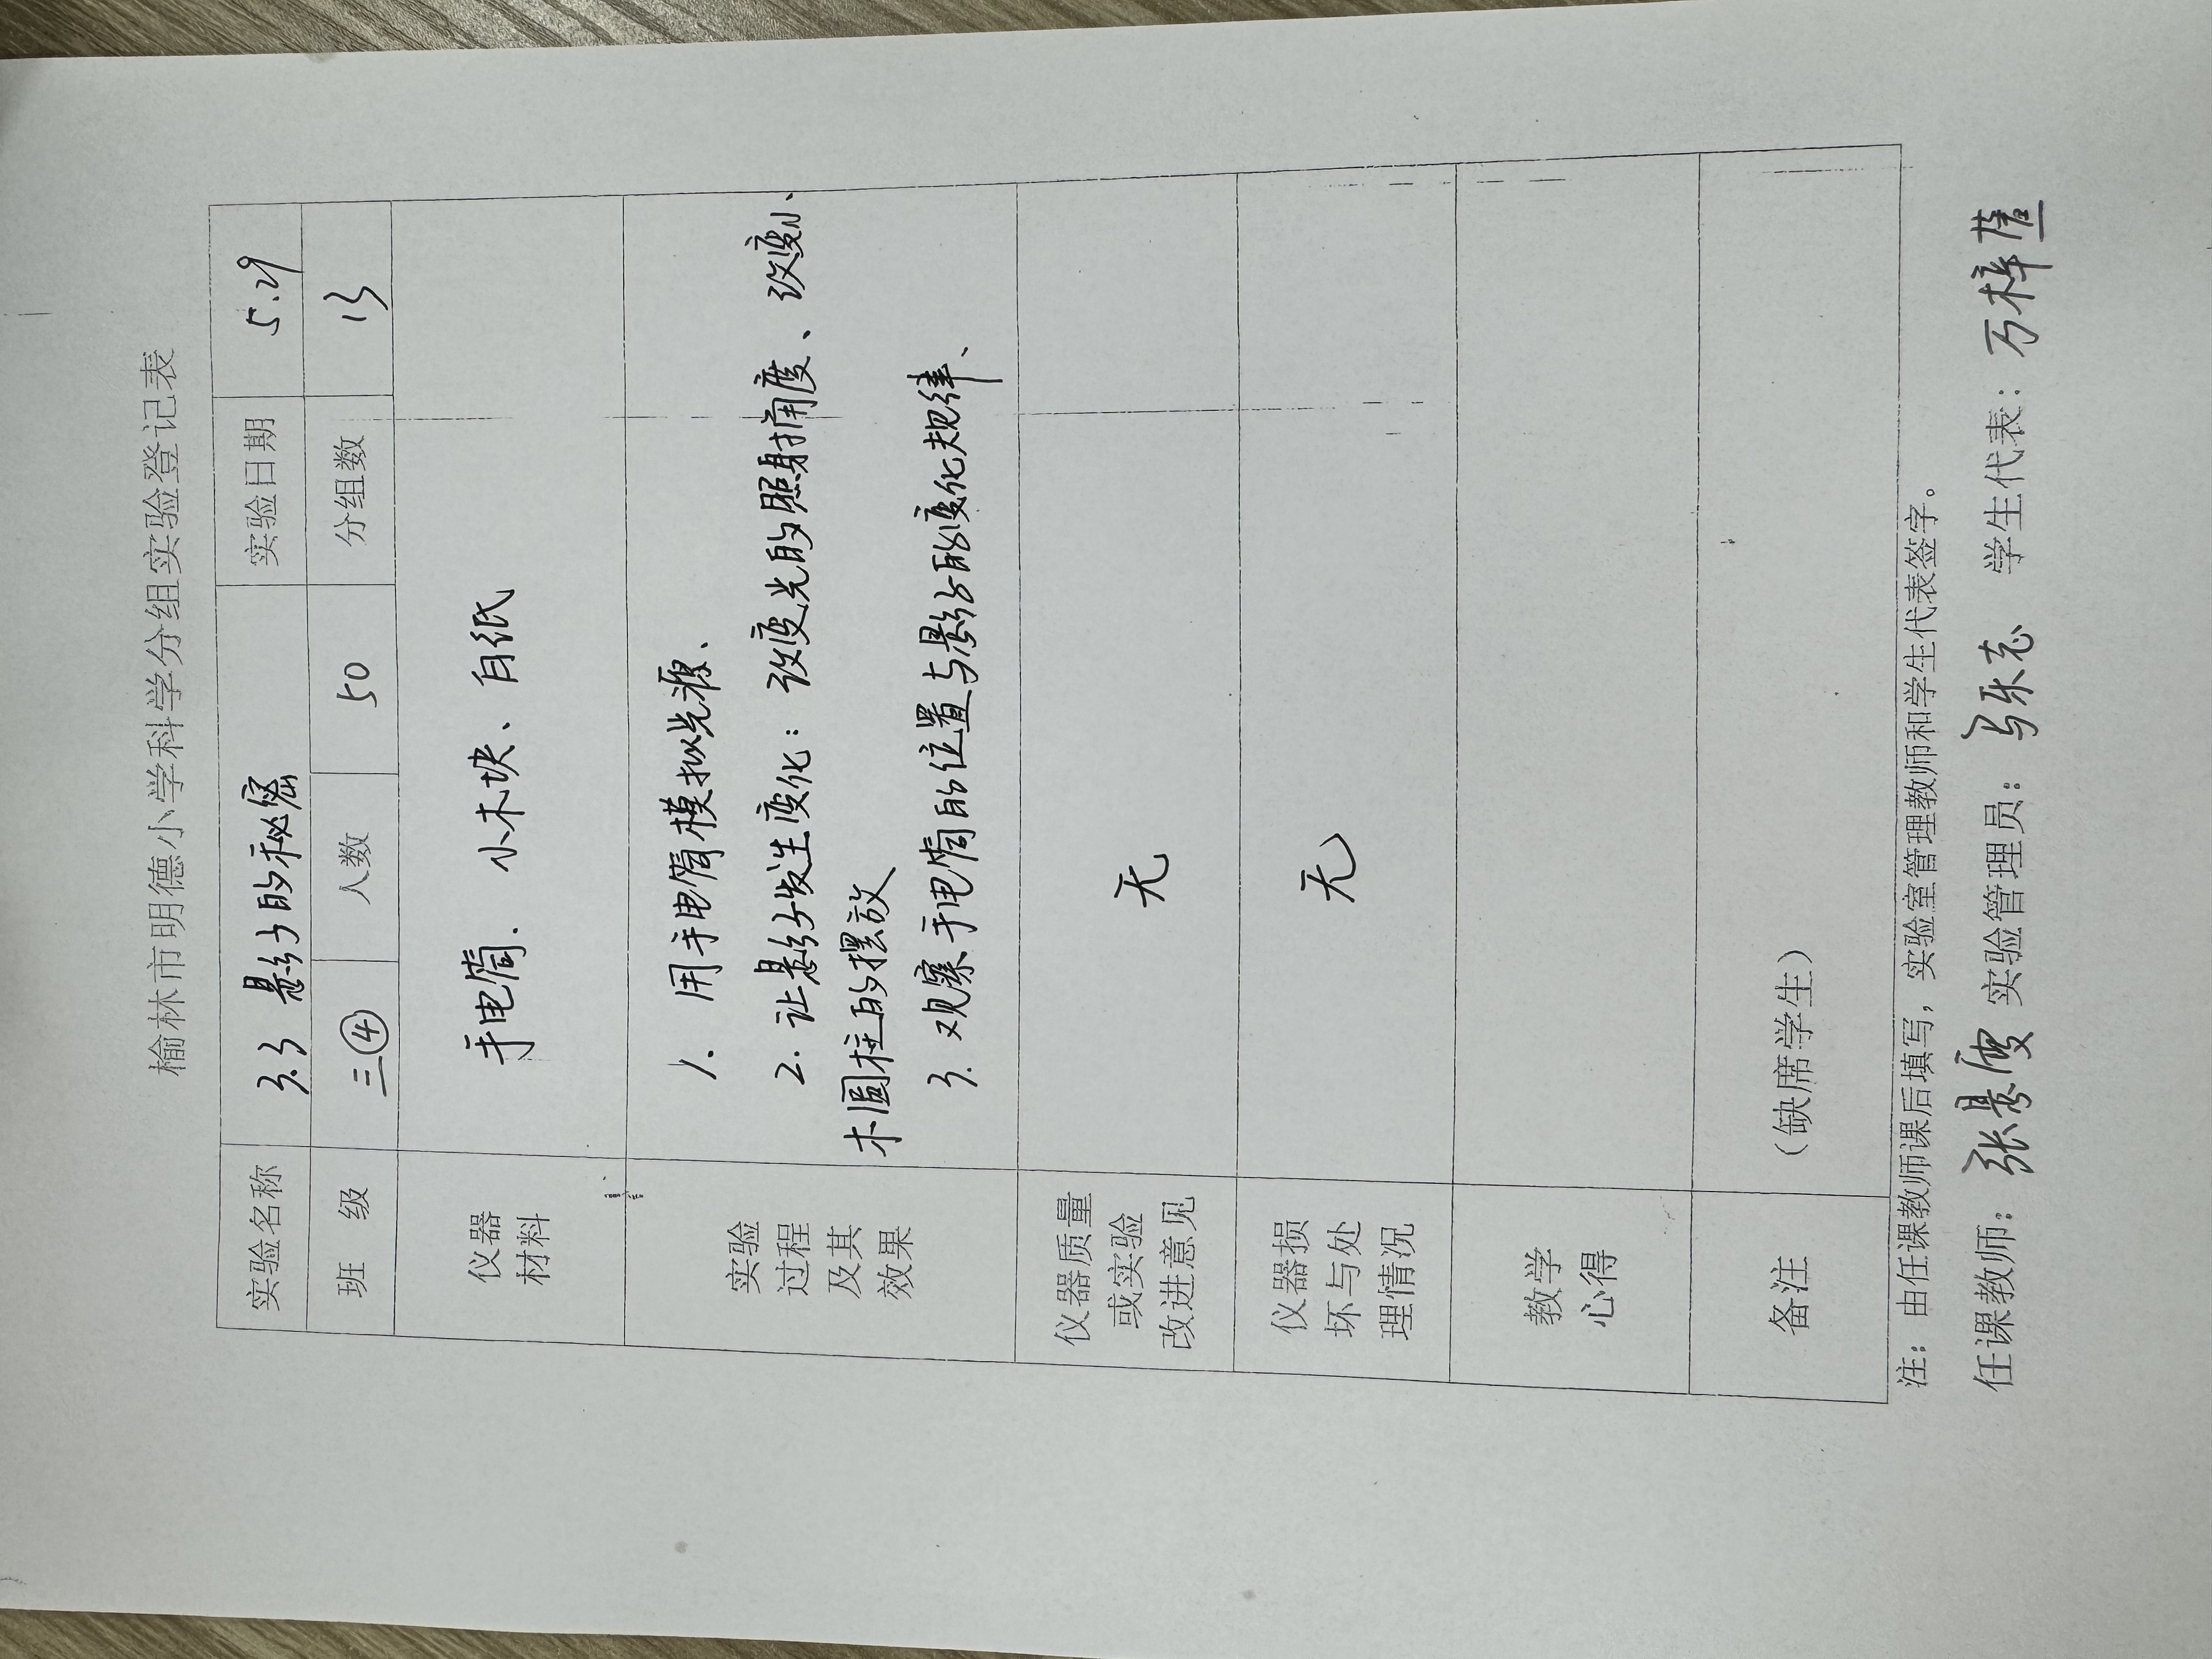 榆林市明德小学科学分组实验登记表
实验名称 3.3 影子的秘密 实验日期 5.29
班 级 三④ 人数 50 分组数 13
仪器
材料
手电筒. 小木块、白纸
实验
过程
及其
效果
1. 用手电筒模拟光源、
2. 让影子发生变化：改变光的照射角度、改变小
木圆柱的摆放
3. 观察手电筒的位置与影子的变化规律、
仪器质量
或实验
改进意见
无
仪器损
坏与处
理情况
无
教学
心得
备注
（缺席学生）
注：由任课教师课后填写，实验室管理教师和学生代表签字。
任课教师： 实验管理员： 学生代表：万梓萱